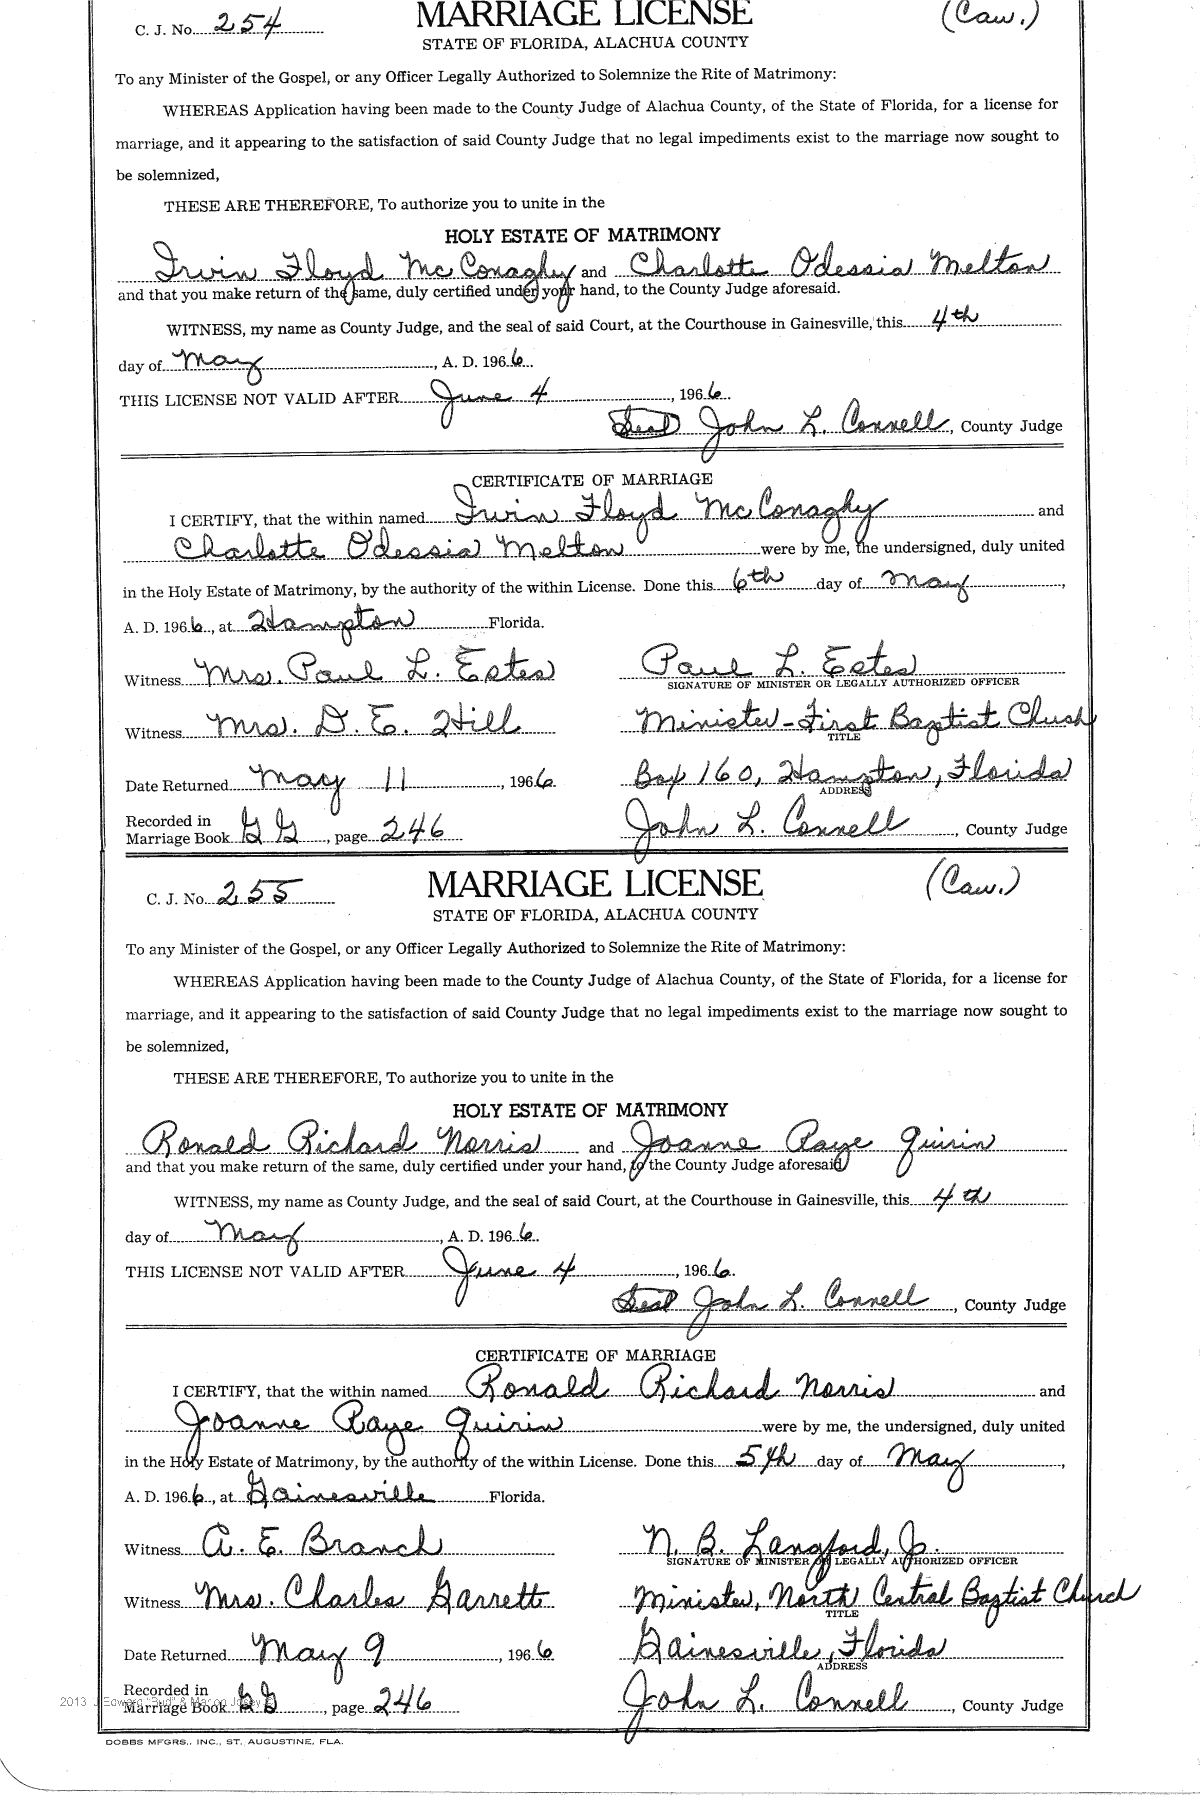 C. J. No. 254 MARRIAGE LICENSE (Caw.)
STATE OF FLORIDA, ALACHUA COUNTY
To any Minister of the Gospel, or any Officer Legally Authorized to Solemnize the Rite of Matrimony:
WHEREAS Application having been made to the County Judge of Alachua County, of the State of Florida, for a license for
marriage, and it appearing to the satisfaction of said County Judge that no legal impediments exist to the marriage now sought to
be solemnized,
THESE ARE THEREFORE, To authorize you to unite in the
HOLY ESTATE OF MATRIMONY
Irvin Floyd McConaghy and Charlotte Odessia Melton
and that you make return of the same, duly certified under your hand, to the County Judge aforesaid.
WITNESS, my name as County Judge, and the seal of said Court, at the Courthouse in Gainesville, this 4th
day of May, A. D. 1966.
THIS LICENSE NOT VALID AFTER June 4, 1966.
Seal John L. Connell, County Judge
CERTIFICATE OF MARRIAGE
I CERTIFY, that the within named Irvin Floyd McConaghy and
Charlotte Odessia Melton were by me, the undersigned, duly united
in the Holy Estate of Matrimony, by the authority of the within License. Done this 6th day of May,
A. D. 1966, at Hampton Florida.
Witness Mrs. Paul L. Estes Paul L. Estes
SIGNATURE OF MINISTER OR LEGALLY AUTHORIZED OFFICER
Witness Mrs. D. E. Hill Minister-First Baptist Chush
TITLE
Date Returned May 11, 1966. Box 160, Hampton, Florida
ADDRESS
Recorded in
Marriage Book GG, page 246 John L. Connell, County Judge
C. J. No. 255 MARRIAGE LICENSE (Caw.)
STATE OF FLORIDA, ALACHUA COUNTY
To any Minister of the Gospel, or any Officer Legally Authorized to Solemnize the Rite of Matrimony:
WHEREAS Application having been made to the County Judge of Alachua County, of the State of Florida, for a license for
marriage, and it appearing to the satisfaction of said County Judge that no legal impediments exist to the marriage now sought to
be solemnized,
THESE ARE THEREFORE, To authorize you to unite in the
HOLY ESTATE OF MATRIMONY
Ronald Richard Norris and Joanne Raye Quirin
and that you make return of the same, duly certified under your hand, to the County Judge aforesaid
WITNESS, my name as County Judge, and the seal of said Court, at the Courthouse in Gainesville, this 4th
day of May, A. D. 1966.
THIS LICENSE NOT VALID AFTER June 4, 1966.
Seal John L. Connell, County Judge
CERTIFICATE OF MARRIAGE
I CERTIFY, that the within named Ronald Richard Norris and
Joanne Raye Quirin were by me, the undersigned, duly united
in the Holy Estate of Matrimony, by the authority of the within License. Done this 5th day of May,
A. D. 1966, at Gainesville Florida.
Witness A. E. Branch N. B. Langford, Jr.
SIGNATURE OF MINISTER OR LEGALLY AUTHORIZED OFFICER
Witness Mrs. Charles Garrett Minister, North Central Baptist Church
TITLE
Date Returned May 9, 1966 Gainesville, Florida
ADDRESS
Recorded in
2013 J Edward "Bud" & Marion Josey
Marriage Book GG, page 246 John L. Connell, County Judge
DOBBS MFGRS., INC., ST. AUGUSTINE, FLA.